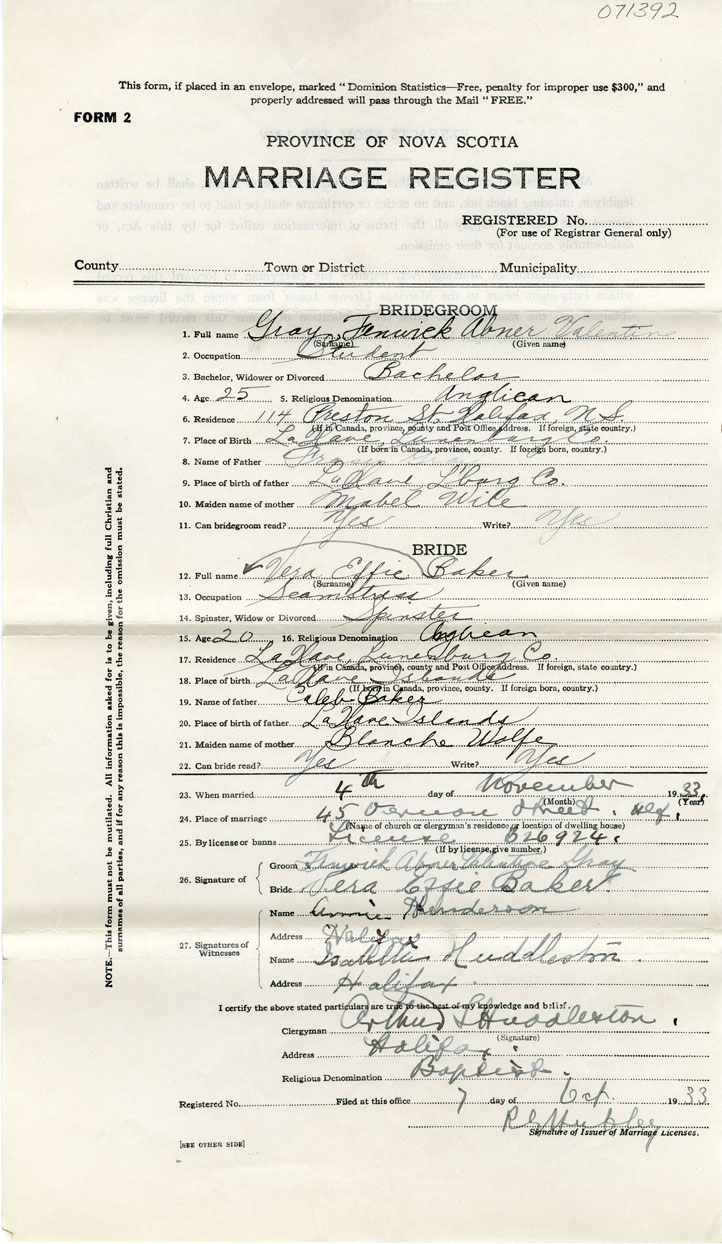 071392
This form, if placed in an envelope, marked "Dominion Statistics—Free, penalty for improper use $300," and
properly addressed will pass through the Mail "FREE."
FORM 2
PROVINCE OF NOVA SCOTIA
MARRIAGE REGISTER
REGISTERED No.
(For use of Registrar General only)
County Town or District Municipality
BRIDEGROOM
1. Full name Gray, Fenwick Abner Valentine
(Surname) (Given name)
2. Occupation Student
3. Bachelor, Widower or Divorced Bachelor
4. Age 25 5. Religious Denomination Anglican
6. Residence 114 Preston St. Halifax, N.S.
(If in Canada, province, county and Post Office address. If foreign, state country.)
7. Place of Birth LaHave, Lunenburg Co.
(If born in Canada, province, county. If foreign born, country.)
8. Name of Father
9. Place of birth of father LaHave L'burg Co.
10. Maiden name of mother Mabel Wile
11. Can bridegroom read? Yes Write? Yes
BRIDE
12. Full name Vera Effie Baker
(Surname) (Given name)
13. Occupation Seamstress
14. Spinster, Widow or Divorced Spinster
15. Age 20 16. Religious Denomination Anglican
17. Residence LaHave, Lunenburg Co.
(If in Canada, province, county and Post Office address. If foreign, state country.)
18. Place of birth LaHave Islands
(If born in Canada, province, county. If foreign born, country.)
19. Name of father Caleb Baker
20. Place of birth of father LaHave Islands
21. Maiden name of mother Blanche Wolfe
22. Can bride read? Yes Write? Yes
23. When married 4th day of November 1933.
(Month) (Year)
24. Place of marriage 45 Vernon Street. Hfx.
(Name of church or clergyman's residence or location of dwelling house)
25. By license or banns License B26924.
(If by license, give number.)
26. Signature of
Groom Fenwick Abner Valentine Gray
Bride Vera Effie Baker
27. Signatures of Witnesses
Name Annie Henderson
Address Halifax
Name Huddleston.
Address Halifax.
I certify the above stated particulars are true to the best of my knowledge and belief.
Clergyman Arthur S Huddleston.
(Signature)
Address Halifax.
Religious Denomination Baptist.
Registered No. Filed at this office 7 day of Oct. 1933
Signature of Issuer of Marriage Licenses.
[SEE OTHER SIDE]
NOTE.—This form must not be mutilated. All information asked for is to be given, including full Christian and
surnames of all parties, and if for any reason this is impossible, the reason for the omission must be stated.